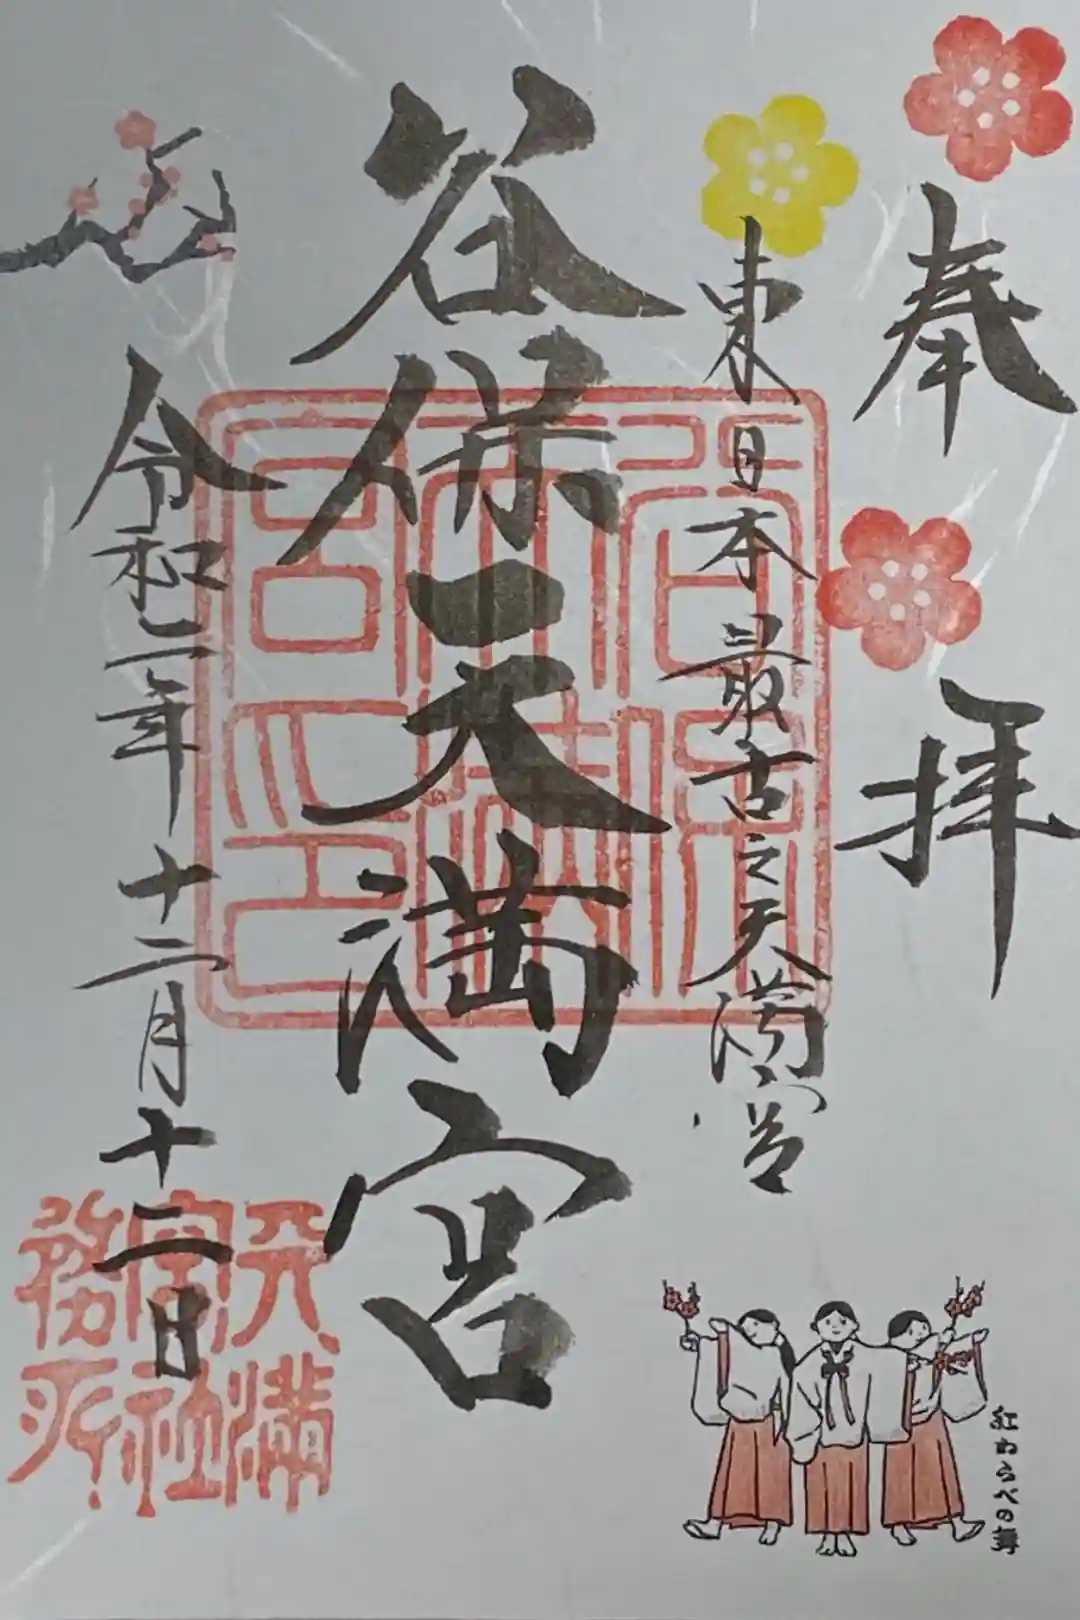 奉拝
東日本最古之天満宮
谷保天満宮
令和二年十二月十二日
天満宮社務所
紅わらべの舞